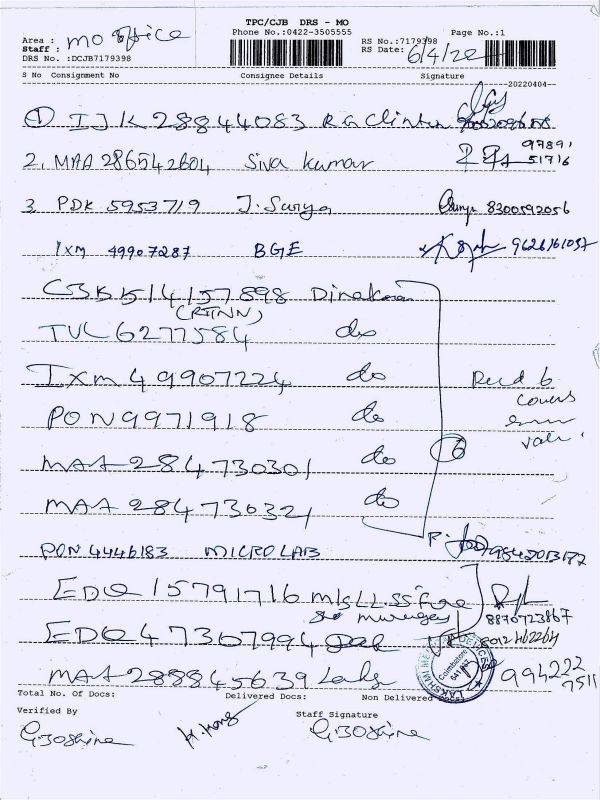 TPC/CJB DRS - MO
Phone No.:0422-3505555
Page No.:1
Area : MO Office
Staff :
DRS No. :DCJB7179398
RS No.:7179398
RS Date: 6/4/22
S No Consignment No Consignee Details Signature
20220404
1 IJK 28844083 RG Clinton
2, MAA 286542604 Siva Kumar 97891 51716
3, PDK 5953719 J. Surya 8300592056
IXM 49907287 BGE 9626161057
514157898 Dinakaran
(RTNN)
TVL 6277584 do
IXM 49907224 do
PON 9971918 do
MAA 284730301 do
MAA 284730321 do
Recd 6 covers
6
PON 4446183 MICROLAB
EDQ 15791716 M/s LLSS Fire
8870723867
EDQ 47367994
MAA 288845639
994222
9511
LAKSHMI
Coimbatore
Total No. Of Docs: Delivered Docs: Non Delivered
Verified By Staff Signature